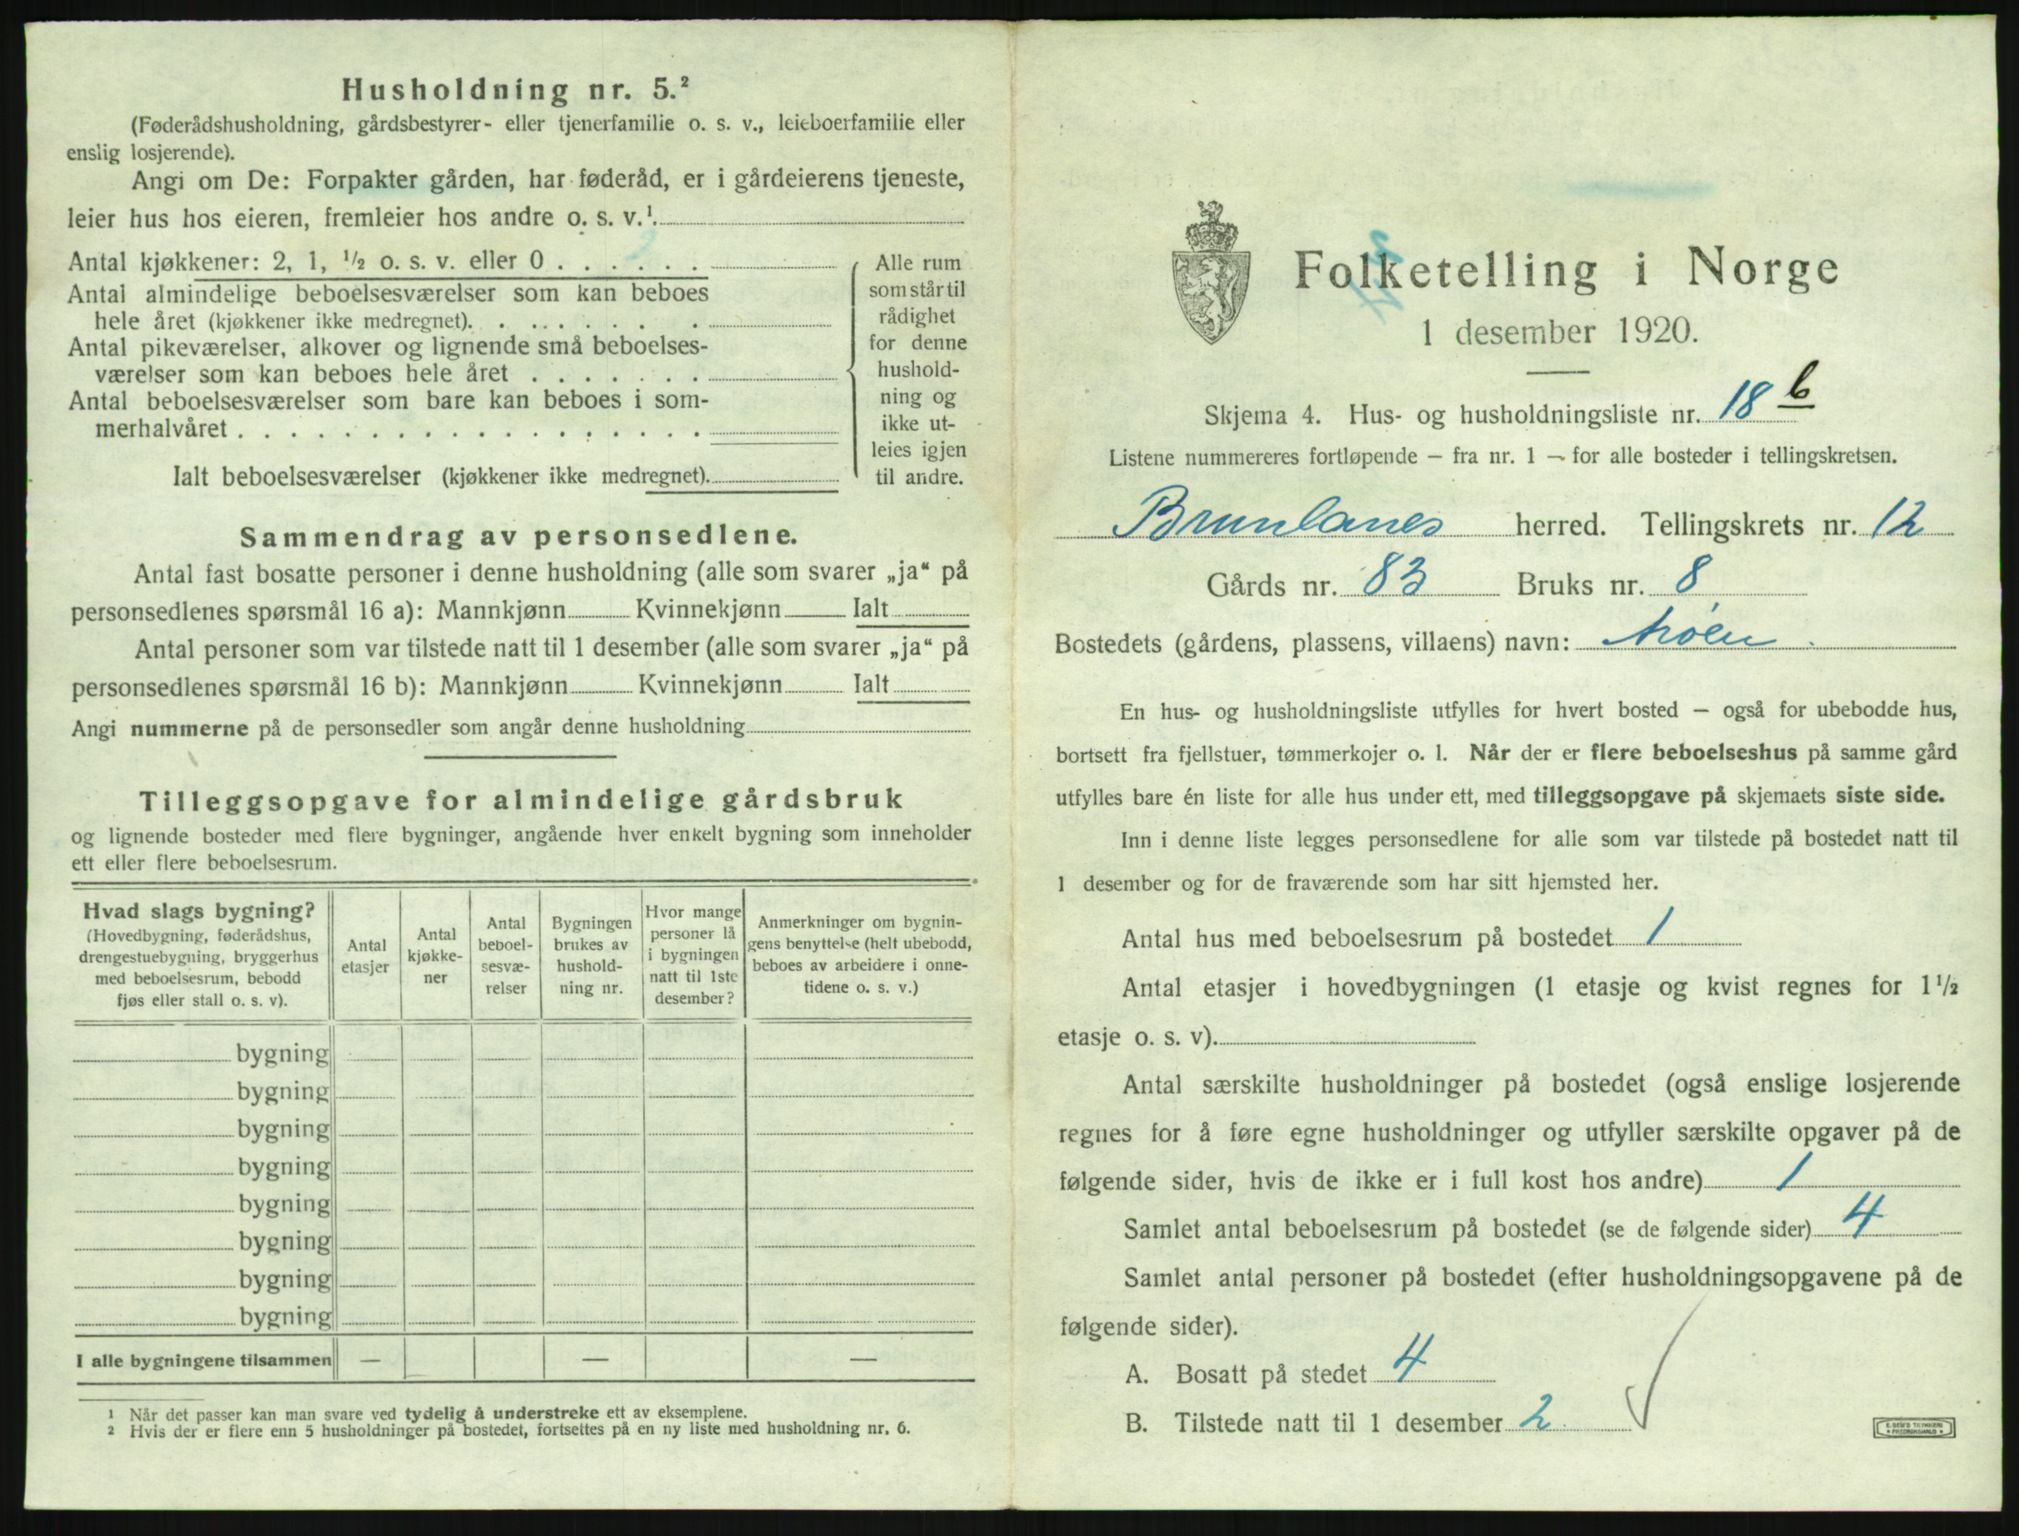 Husholdning nr. 5.²
(Føderådshusholdning, gårdsbestyrer- eller tjenerfamilie o. s. v., leieboerfamilie eller
enslig losjerende).
Angi om De: Forpakter gården, har føderåd, er i gårdeierens tjeneste,
leier hus hos eieren, fremleier hos andre o. s. v.¹.
Antal kjøkkener: 2, 1, ½ o. s. v. eller 0 . . . . . .
Antal almindelige beboelsesværelser som kan beboes
hele året (kjøkkener ikke medregnet). . . . . . . .
Antal pikeværelser, alkover og lignende små beboelses-
værelser som kan beboes hele året . . . . . . .
Antal beboelsesværelser som bare kan beboes i som-
merhalvåret . . . . . . . . . . . . . . . . . .
Ialt beboelsesværelser (kjøkkener ikke medregnet).
Alle rum
som står til
rådighet
for denne
hushold-
ning og
ikke ut-
leies igjen
til andre.
Sammendrag av personsedlene.
Antal fast bosatte personer i denne husholdning (alle som svarer „ja“ på
personsedlenes spørsmål 16 a): Mannkjønn Kvinnekjønn Ialt
Antal personer som var tilstede natt til 1 desember (alle som svarer „ja“ på
personsedlenes spørsmål 16 b): Mannkjønn Kvinnekjønn Ialt
Angi nummerne på de personsedler som angår denne husholdning
Tilleggsopgave for almindelige gårdsbruk
og lignende bosteder med flere bygninger, angående hver enkelt bygning som inneholder
ett eller flere beboelsesrum.
Hvad slags bygning?
(Hovedbygning, føderådshus,
drengestuebygning, bryggerhus
med beboelsesrum, bebodd
fjøs eller stall o. s. v).
Antal
etasjer
Antal
kjøkke-
ner
Antal
beboel-
sesvæ-
relser
Bygningen
brukes av
hushold-
ning nr.
Hvor mange
personer lå
i bygningen
natt til 1ste
desember?
Anmerkninger om bygnin-
gens benyttelse (helt ubebodd,
beboes av arbeidere i onne-
tidene o. s. v.)
bygning
bygning
bygning
bygning
bygning
bygning
bygning
bygning
I alle bygningene tilsammen — — —
¹ Når det passer kan man svare ved tydelig å understreke ett av eksemplene.
² Hvis der er flere enn 5 husholdninger på bostedet, fortsettes på en ny liste med husholdning nr. 6.
Folketelling i Norge
1 desember 1920.
Skjema 4. Hus- og husholdningsliste nr. 18 b
Listene nummereres fortløpende — fra nr. 1 — for alle bosteder i tellingskretsen.
Brunlanes herred. Tellingskrets nr. 12
Gårds nr. 83 Bruks nr. 8
Bostedets (gårdens, plassens, villaens) navn:
En hus- og husholdningsliste utfylles for hvert bosted — også for ubebodde hus,
bortsett fra fjellstuer, tømmerkojer o. l. Når der er flere beboelseshus på samme gård
utfylles bare én liste for alle hus under ett, med tilleggsopgave på skjemaets siste side.
Inn i denne liste legges personsedlene for alle som var tilstede på bostedet natt til
1 desember og for de fraværende som har sitt hjemsted her.
Antal hus med beboelsesrum på bostedet 1
Antal etasjer i hovedbygningen (1 etasje og kvist regnes for 1½
etasje o. s. v).
Antal særskilte husholdninger på bostedet (også enslige losjerende
regnes for å føre egne husholdninger og utfyller særskilte opgaver på de
følgende sider, hvis de ikke er i full kost hos andre) 1
Samlet antal beboelsesrum på bostedet (se de følgende sider) 4
Samlet antal personer på bostedet (efter husholdningsopgavene på de
følgende sider).
A. Bosatt på stedet 4
B. Tilstede natt til 1 desember 2